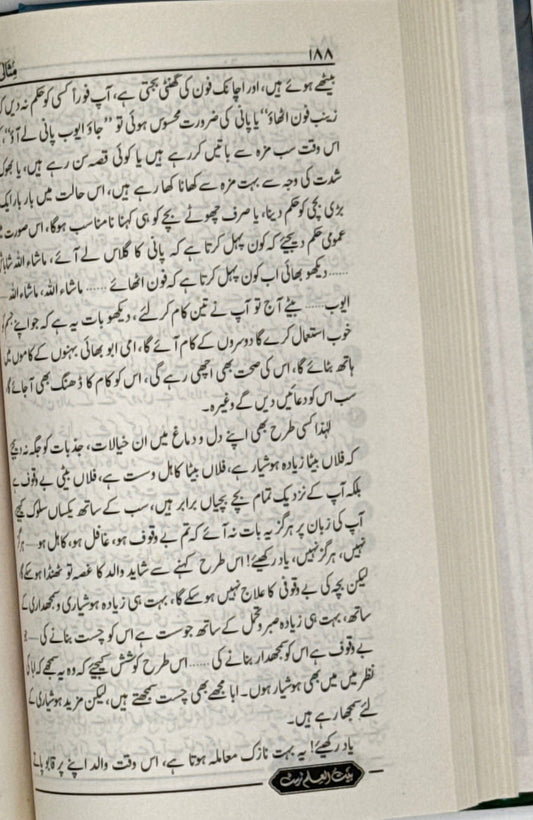 ۱۸۸
مثالی
بیٹھے ہوئے ہیں، اور اچانک فون کی گھنٹی بجتی ہے، آپ فوراً کسی کو حکم نہ دیں
زینب فون اٹھاؤ“ یا پانی کی ضرورت محسوس ہوئی تو ”جاؤ ایوب پانی لے آؤ“،
اس وقت سب مزہ سے باتیں کر رہے ہیں یا کوئی قصہ سن رہے ہیں، یا بھوک
شدت کی وجہ سے بہت مزہ سے کھانا کھا رہے ہیں، اس حالت میں بار بار ایک
بڑی بچی کو حکم دینا، یا صرف چھوٹے بچے کو ہی کہنا نامناسب ہوگا، اس صورت
عمومی حکم دیجیئے کہ کون پہل کرتا ہے کہ پانی کا گلاس لے آئے، ماشاء اللہ
...... دیکھو بھائی اب کون پہل کرتا ہے کہ فون اٹھائے ...... ماشاء اللہ، ماشاء اللہ
ایوب ...... بیٹے آج تو آپ نے تین کام کر لئے، دیکھو بات یہ ہے کہ جو اپنے جسم
خوب استعمال کرے گا دوسروں کے کام آئے گا، امی ابو بھائی بہنوں کے کاموں میں
ہاتھ بٹائے گا، اس کی صحت بھی اچھی رہے گی، اس کو کام کا ڈھنگ بھی آجائے گا،
سب اس کو دعائیں دیں گے وغیرہ۔
لہٰذا کسی طرح بھی اپنے دل و دماغ میں ان خیالات، جذبات کو جگہ نہ دیجیے
کہ فلاں بیٹا زیادہ ہوشیار ہے، فلاں بیٹا کاہل وست ہے، فلاں بیٹی بے وقوف ہے
بلکہ آپ کے نزدیک تمام بچے بچیاں برابر ہیں، سب کے ساتھ یکساں سلوک کیجیے
آپ کی زبان پر ہرگز یہ بات نہ آئے کہ تم بے وقوف ہو، غافل ہو، کاہل ہو — ہرگز
نہیں، ہرگز نہیں، یاد رکھیئے! اس طرح کہنے سے شاید والد کا غصہ تو ٹھنڈا ہو سکے گا
لیکن بچہ کی بے وقوفی کا علاج نہیں ہوسکے گا، بہت ہی زیادہ ہوشیاری و سمجھداری کے
ساتھ، بہت ہی زیادہ صبر و تحمل کے ساتھ جو ست ہے اس کو چست بنانے کی — جو
بے وقوف ہے اس کو سمجھدار بنانے کی ...... اس طرح کوشش کیجیے کہ وہ یہ سمجھے کہ ابا کی
نظر میں میں بھی ہوشیار ہوں۔ ابا مجھے بھی چست سمجھتے ہیں، لیکن مزید ہوشیاری کے
لئے سمجھا رہے ہیں۔
یاد رکھیئے! یہ بہت نازک معاملہ ہوتا ہے، اس وقت والد اپنے پر قابو پانے
بیت العلم ٹرسٹ